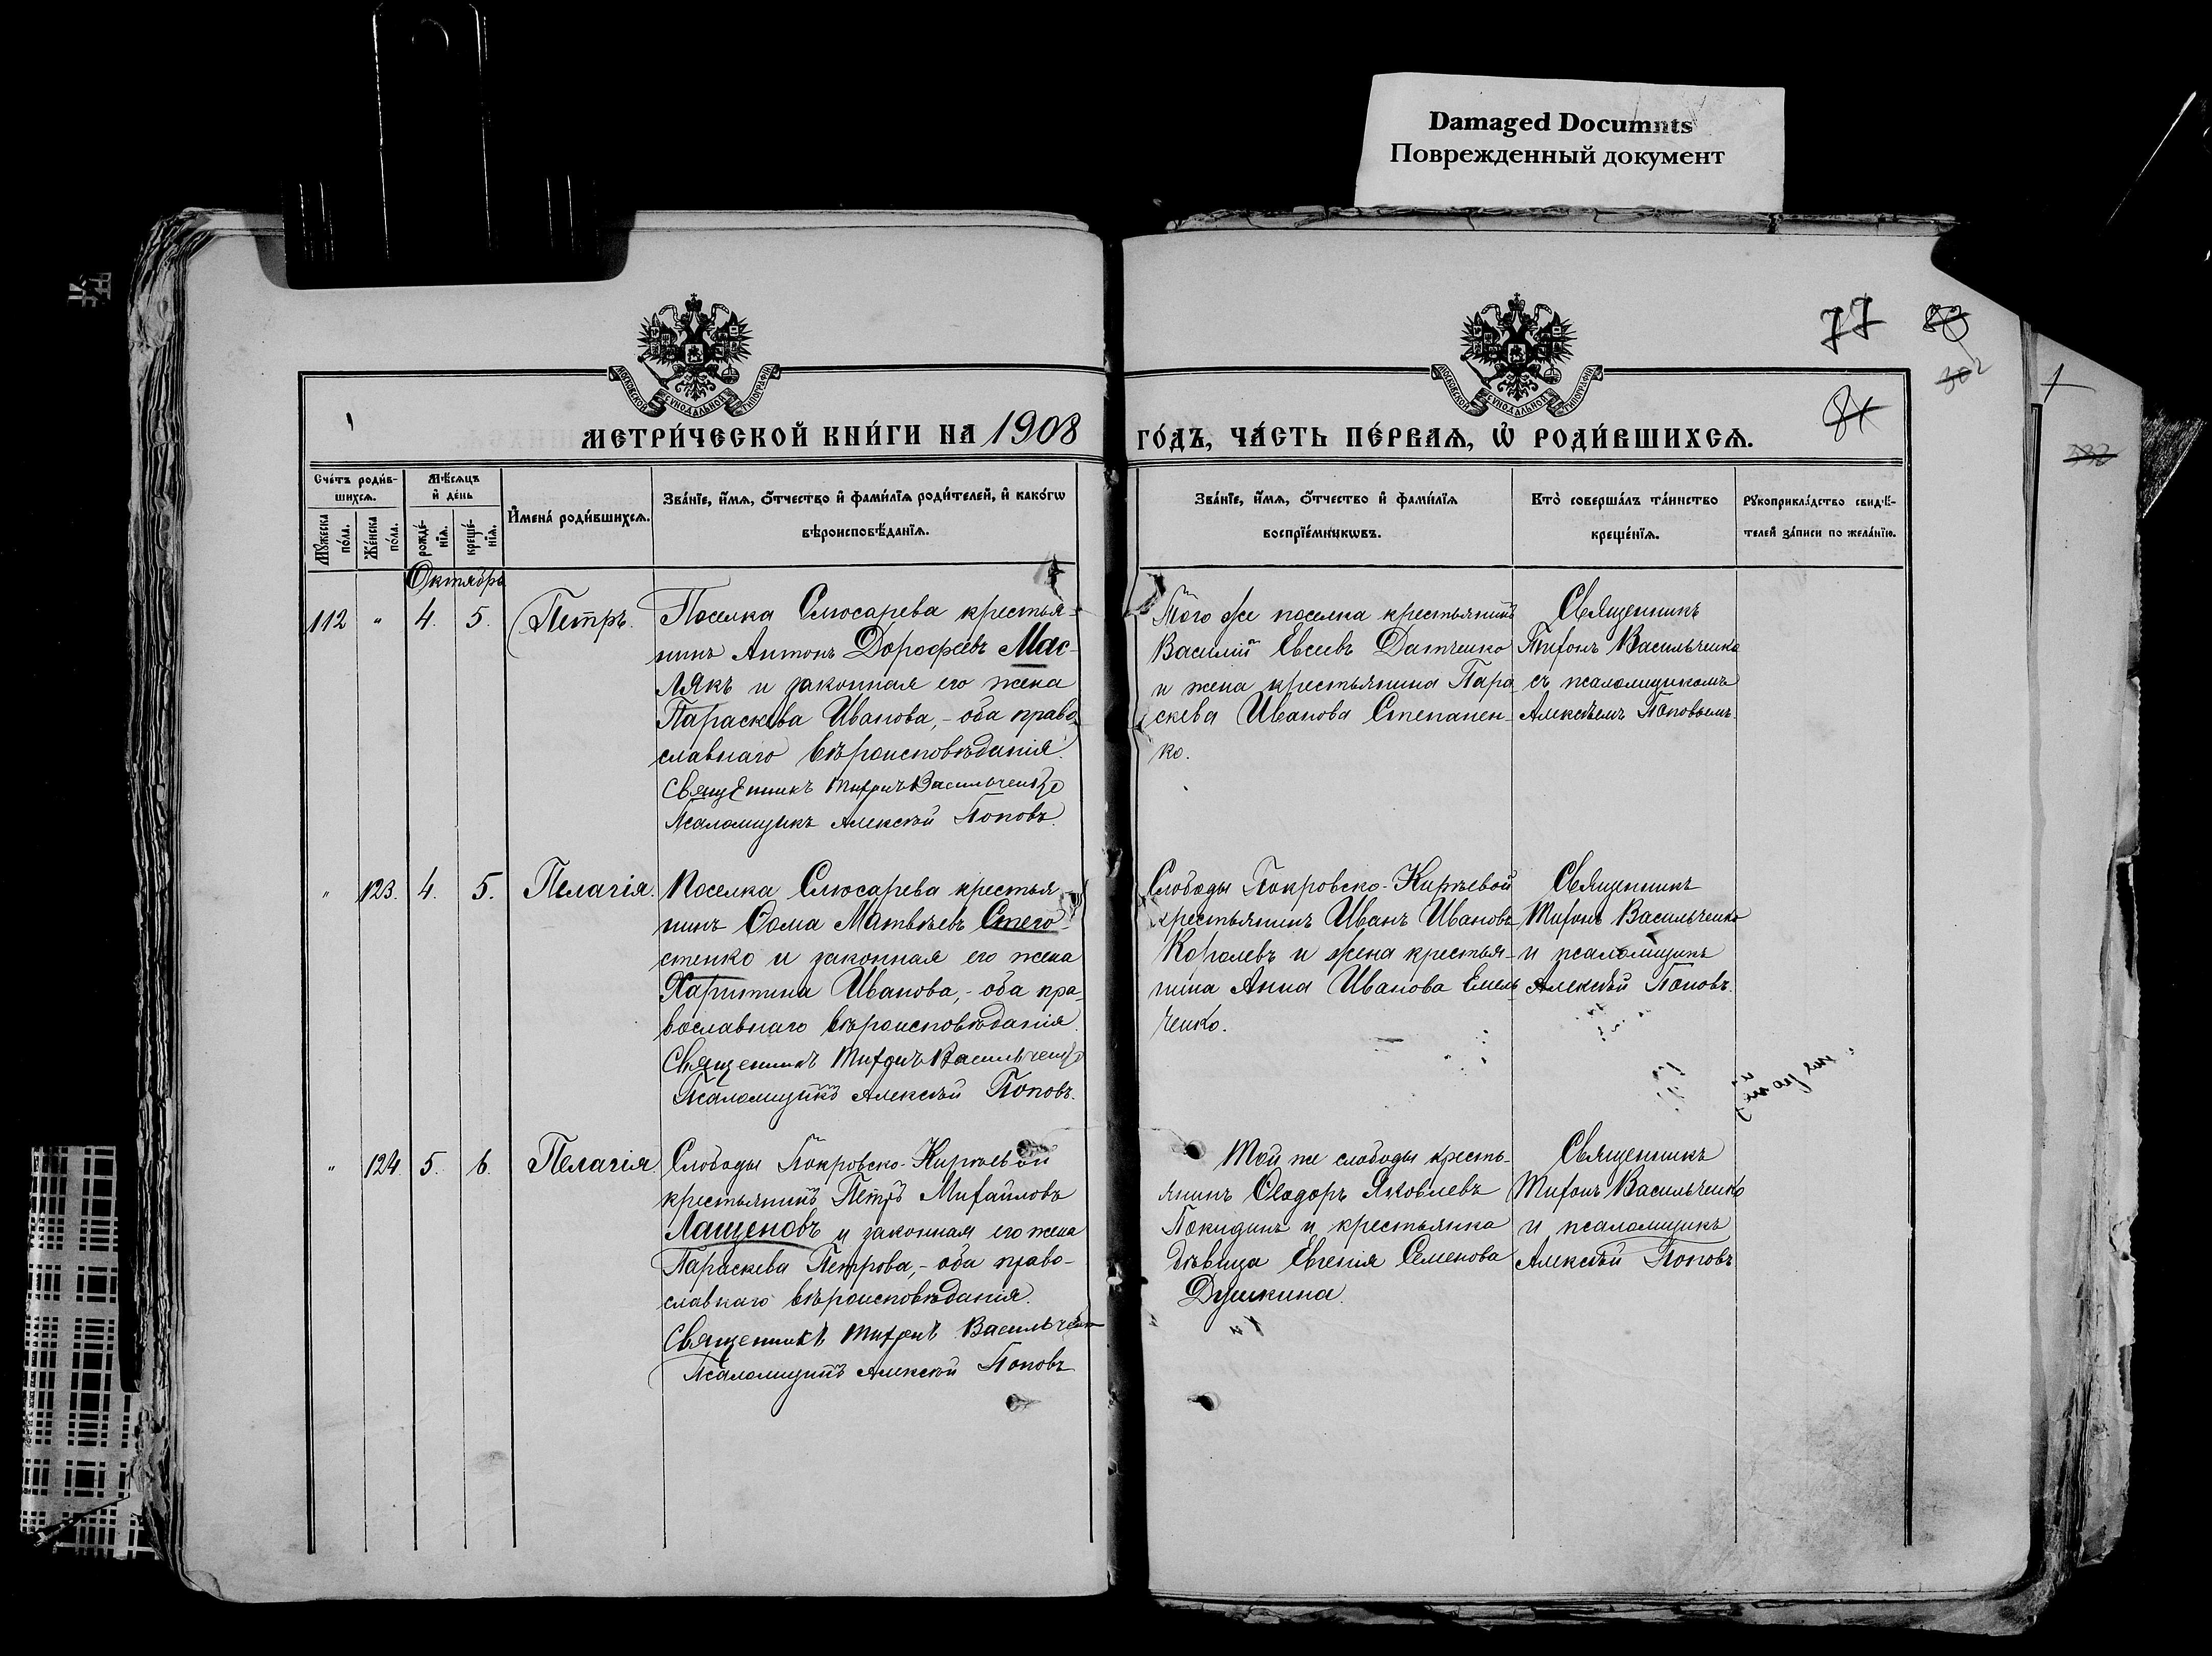 Damaged Documnts
Поврежденный документ
77
МОСКОВСКОЙ СѴНОДАЛЬНОЙ ТИПОГРАФІИ
МОСКОВСКОЙ СѴНОДАЛЬНОЙ ТИПОГРАФІИ
81
МЕТРИ́ЧЕСКОЙ КНИ́ГИ НА 1908
ГО́ДЪ, ЧА́СТЬ ПЕ́РВАѦ, Ѡ҆ РОДИ́ВШИХСѦ.
Сче́тъ роди́в-
шихсѧ.
Мѣ́сѧцъ
и҆ де́нь
Мꙋ́жеска
по́ла.
Же́нска
по́ла.
рожде́-
нїѧ.
креще́-
нїѧ.
И҆мена̀ роди́вшихсѧ.
Зва́нїе, и҆́мѧ, ѻ҆́тчество и҆ фами́лїѧ роди́телей, и҆ како́гѡ
вѣроисповѣ́данїѧ.
Зва́нїе, и҆́мѧ, ѻ҆́тчество и҆ фами́лїѧ
воспрїе́мникѡвъ.
Кто̀ соверша́лъ та́инство
креще́нїѧ.
Рꙋкоприкла́дство свидѣ́-
телей за́писи по жела́нїю.
Октябрь
112 " 4. 5. Петръ.
Поселка Слюсарева крестья-
нинъ Антонъ Дорофеевъ Мас-
лякъ и законная его жена
Параскева Иванова,- оба право
славнаго вѣроисповѣданія.
Священникъ Тифонъ Васильченко
Псаломщикъ Алексѣй Поповъ.
Того же поселка крестьянинъ
Василій Евсеевъ Датченко
и жена крестьянина Пара
скева Иванова Степанен-
ко.
Священникъ
Тифонъ Васильченко
съ псаломщикомъ
Алексѣемъ Поповымъ.
" 123. 4. 5. Пелагія.
Поселка Слюсарева крестья
нинъ Ѳома Матвѣевъ Стего-
стенко и законная его жена
Харитина Иванова,- оба пра-
вославнаго вѣроисповѣданія.
Священникъ Тифонъ Васильченко
Псаломщикъ Алексѣй Поповъ.
Слободы Покровско-Кирѣевой
крестьянинъ Иванъ Ивановъ
Королевъ и жена крестья-
нина Анна Иванова Емель
ченко.
Священникъ
Тифонъ Васильченко
и псаломщикъ
Алексѣй Поповъ.
" 124 5. 6. Пелагія
Слободы Покровско-Кирѣевой
крестьянинъ Петръ Михайловъ
Лащеновъ и законная его жена
Параскева Петрова,- оба право-
славнаго вѣроисповѣданія.
Священникъ Тифонъ Васильченко
Псаломщикъ Алексѣй Поповъ
Той же слободы кресть-
янинъ Ѳеодоръ Яковлевъ
Покидинъ и крестьянка
дѣвица Евгенія Семенова
Душкина.
Священникъ
Тифонъ Васильченко
и псаломщикъ
Алексѣй Поповъ